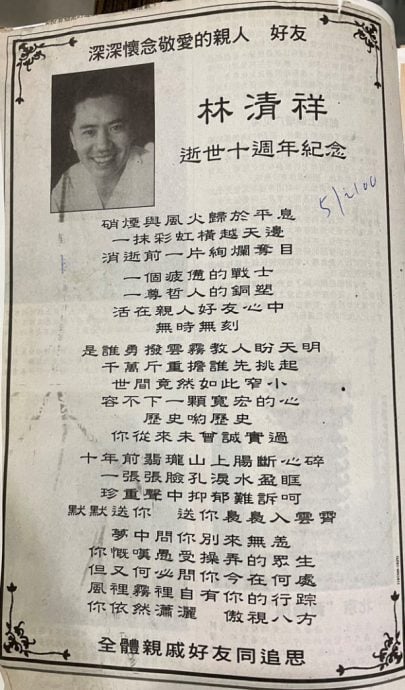 深深懷念敬愛的親人　好友
林清祥
逝世十週年紀念
5/2/00
硝煙與風火歸於平息
一抹彩虹橫越天邊
消逝前一片絢爛奪目
一個疲憊的戰士
一尊哲人的銅塑
活在親人好友心中
無時無刻
是誰勇撥雲霧教人盼天明
千萬斤重擔誰先挑起
世間竟然如此窄小
容不下一顆寬宏的心
歷史喲歷史
你從來未曾誠實過
十年前翡瓏山上腸斷心碎
一張張臉孔淚水盈眶
珍重聲中抑郁難訴呵
默默送你　送你裊裊入雲霄
夢中問你別來無恙
你慨嘆愚受操弄的眾生
但又何必問你今在何處
風裡霧裡自有你的行踪
你依然瀟灑　傲視八方
全體親戚好友同追思